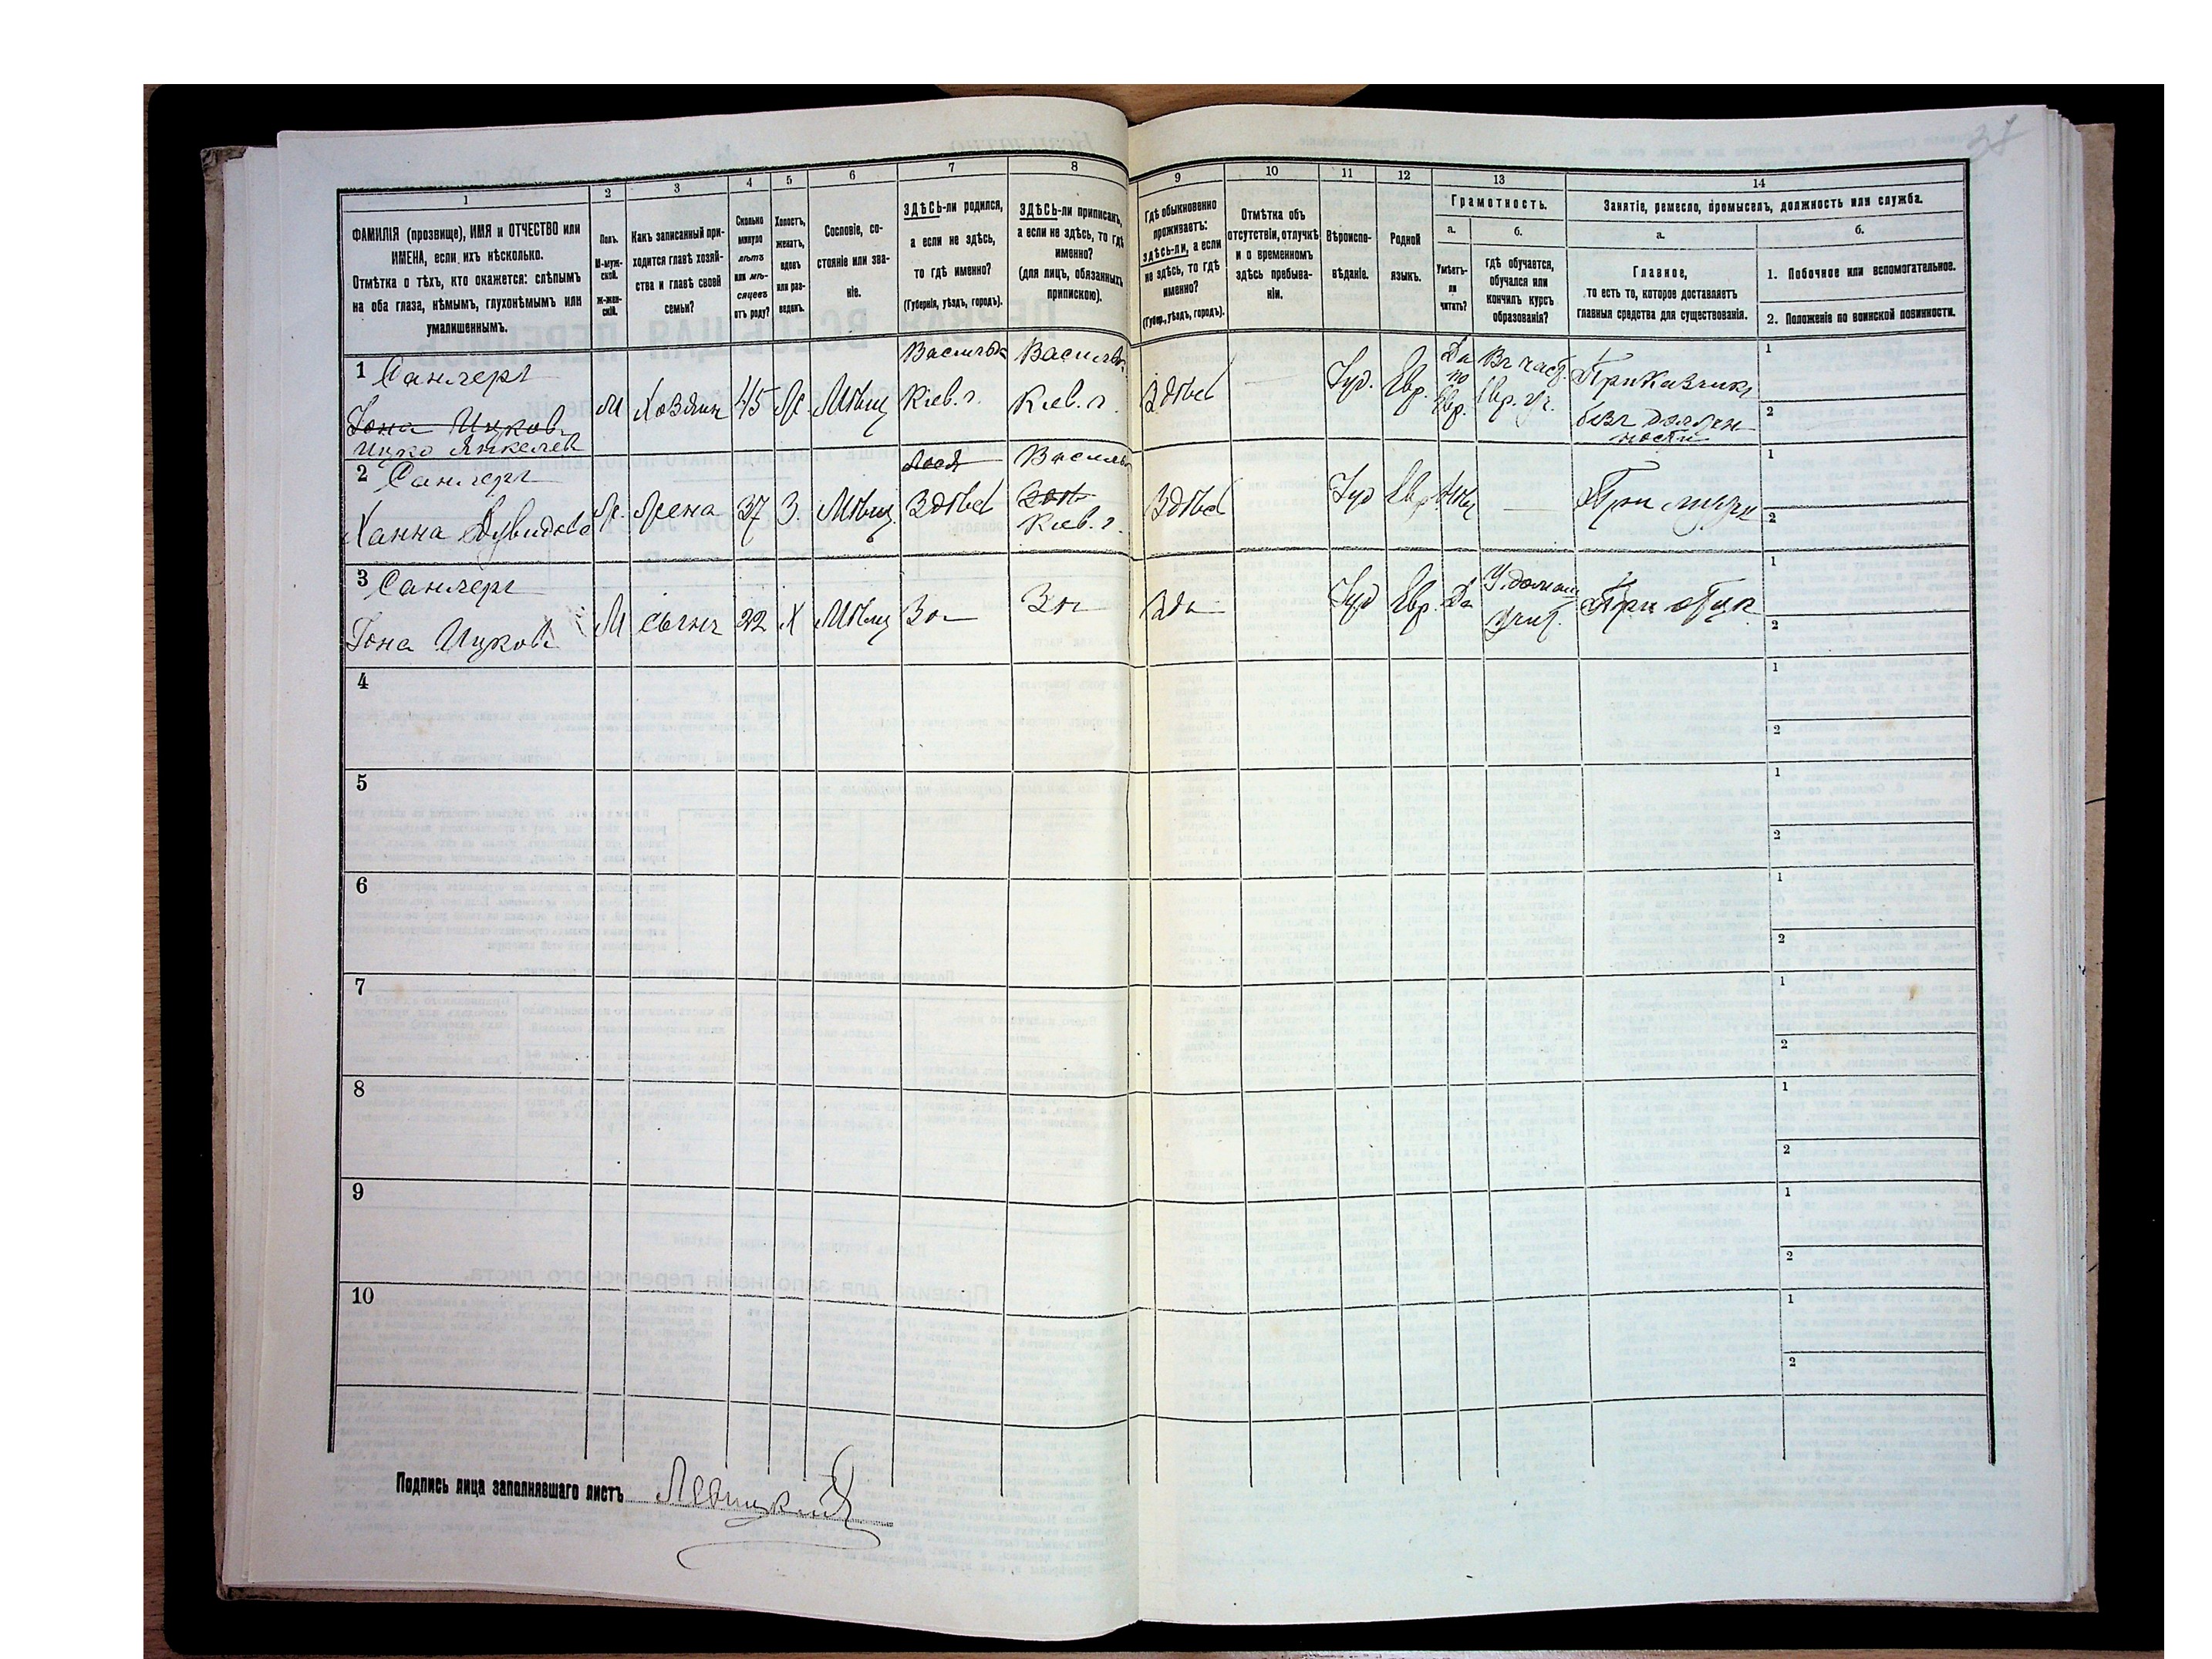 38
1 2 3 4 5 6 7 8 9 10 11 12 13 14
ФАМИЛІЯ (прозвище), ИМЯ и ОТЧЕСТВО или ИМЕНА, если ихъ нѣсколько.
Отмѣтка о тѣхъ, кто окажется: слѣпымъ на оба глаза, нѣмымъ, глухонѣмымъ или умалишеннымъ.
Полъ. М-мужской. Ж-женскій.
Какъ записанный приходится главѣ хозяйства и главѣ своей семьи?
Сколько минуло лѣтъ или мѣсяцевъ отъ роду?
Холостъ, женатъ, вдовъ или разведенъ.
Сословіе, состояніе или званіе.
ЗДѢСЬ-ли родился, а если не здѣсь, то гдѣ именно?
(Губернія, уѣздъ, городъ).
ЗДѢСЬ-ли приписанъ, а если не здѣсь, то гдѣ именно?
(для лицъ, обязанныхъ припискою).
Гдѣ обыкновенно проживаетъ: здѣсь-ли, а если не здѣсь, то гдѣ именно?
(Губер., уѣздъ, городъ).
Отмѣтка объ отсутствіи, отлучкѣ и о временномъ здѣсь пребываніи.
Вѣроисповѣданіе.
Родной языкъ.
Грамотность.
а.
Умѣетъ-ли читать?
б.
гдѣ обучается, обучался или кончилъ курсъ образованія?
Занятіе, ремесло, промыселъ, должность или служба.
а.
Главное,
то есть то, которое доставляетъ главныя средства для существованія.
б.
1. Побочное или вспомогательное.
2. Положеніе по воинской повинности.
1
Іона Ицковъ
Ицко Янкелевъ
М Хозяин 45 Ж. Мѣщ
Кіев. г. Кіев. г. Здѣсь Іуд. Евр. Да по Евр. Въ част. Евр. уч. Приказчикъ
безъ должности
1
2
2
Ханна Дувидова
Ж. Жена 37 З. Мѣщ. Здѣсь
Кіев. г. Здѣсь Іуд Евр Нѣт При мужѣ
1
2
3
Іона Ицковъ
М Сынъ 22 Х Мѣщ Іуд Евр. Да У домаш учит. При отцѣ
1
2
4 1
2
5 1
2
6 1
2
7 1
2
8 1
2
9 1
2
10 1
2
Подпись лица заполнявшаго листъ Левицкій